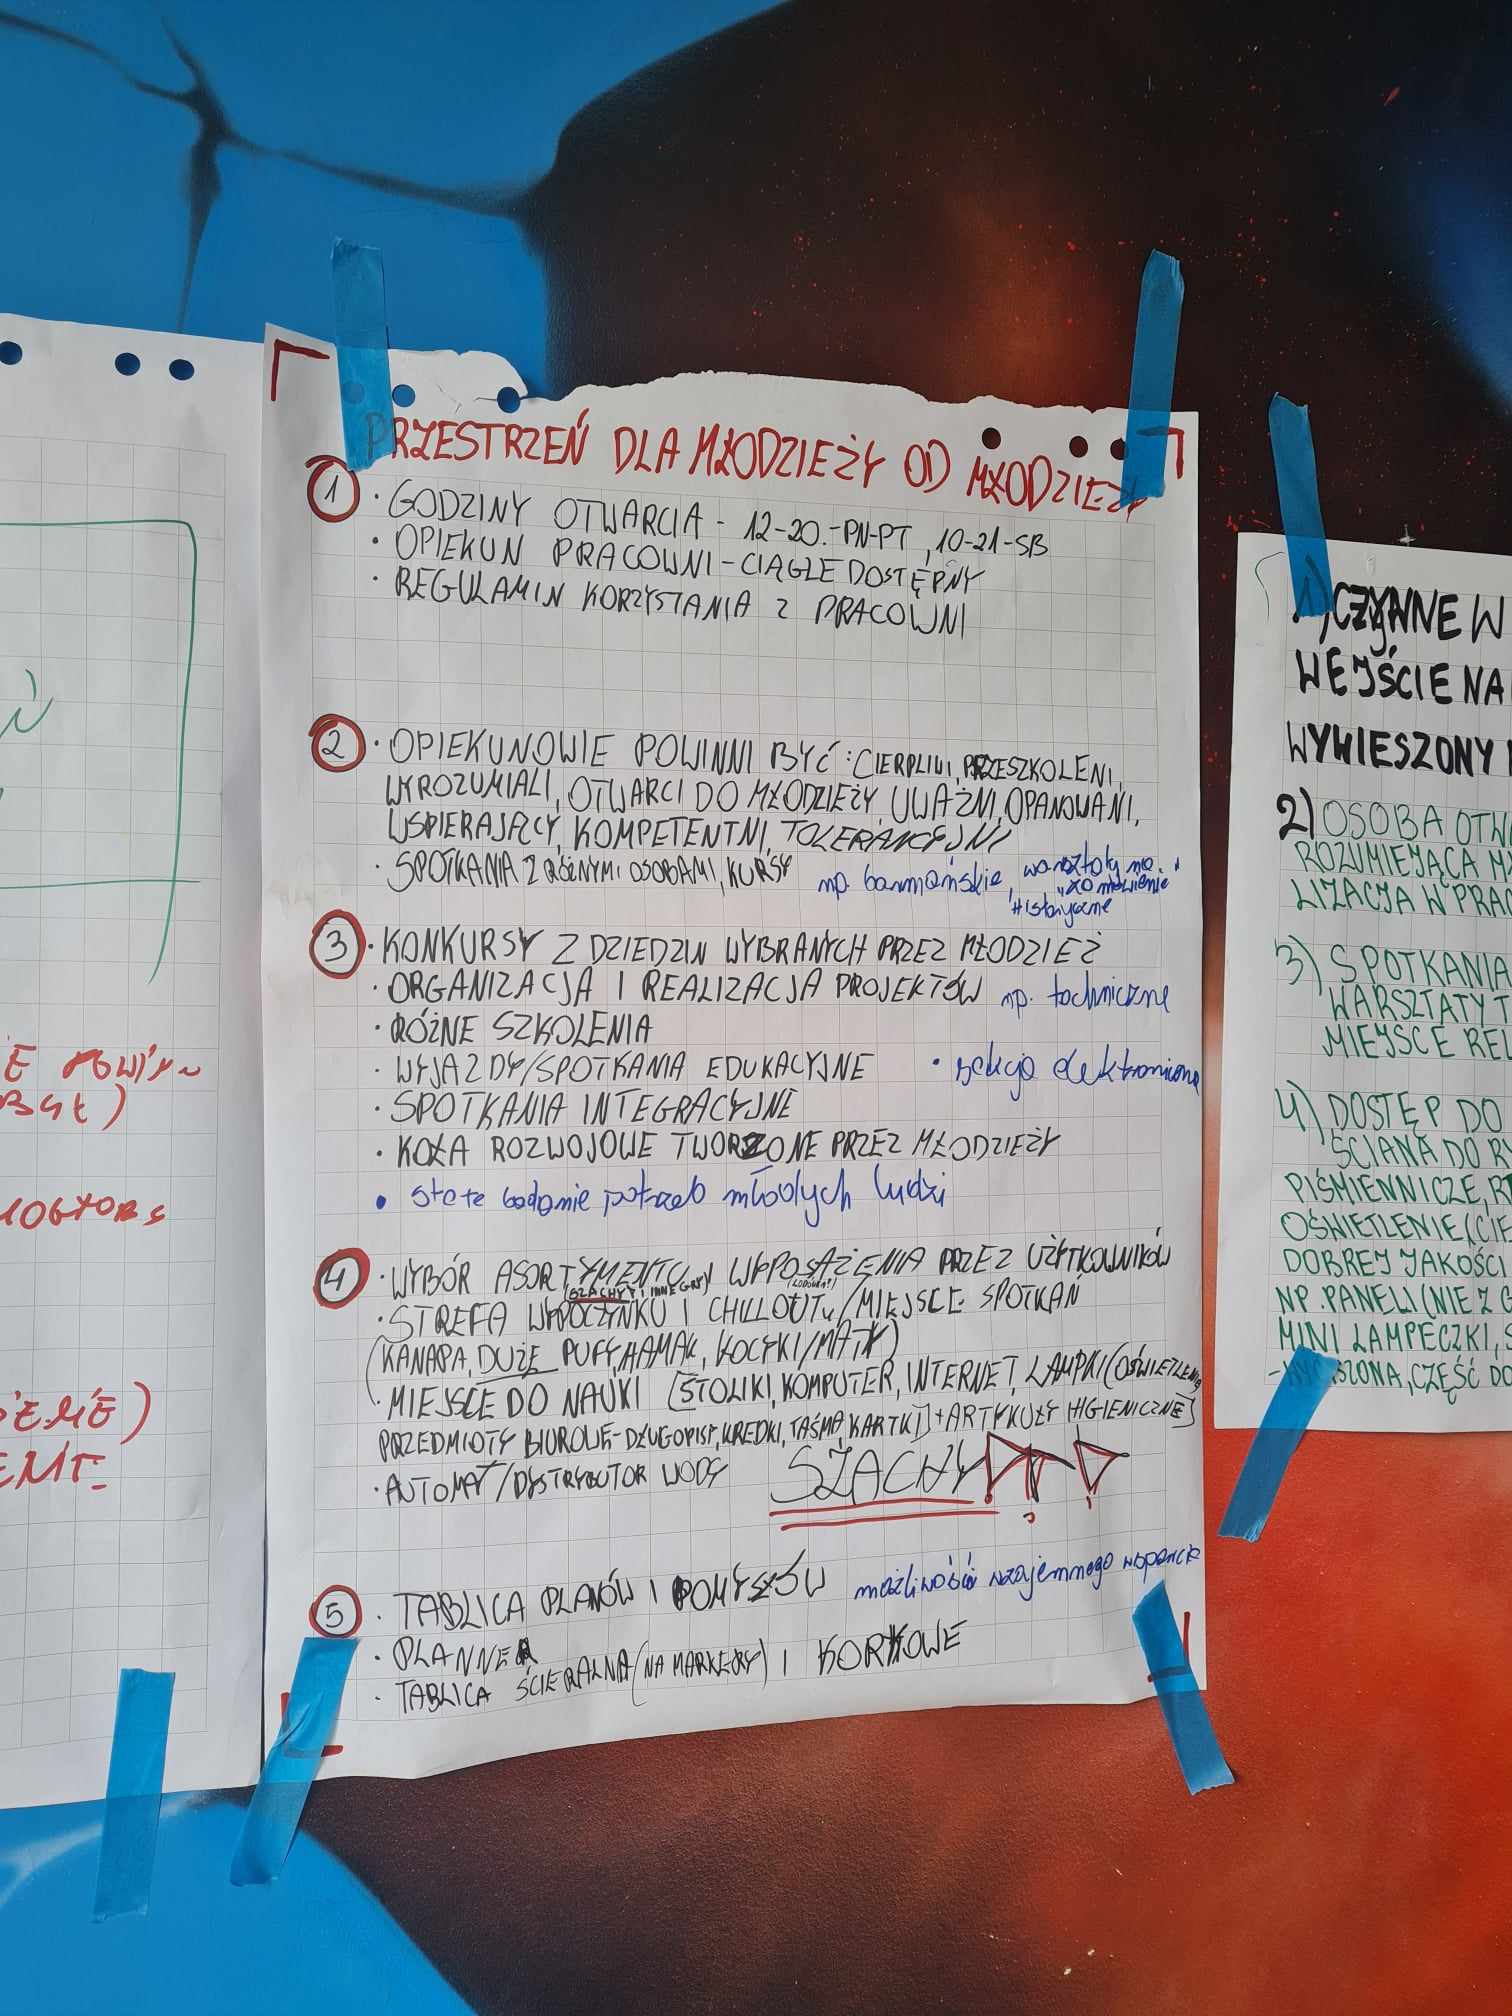 PRZESTRZEŃ DLA MŁODZIEŻY OD MŁODZIEŻY
1
· GODZINY OTWARCIA - 12-20.-PN-PT, 10-21-SB
· OPIEKUN PRACOWNI - CIĄGLE DOSTĘPNY
· REGULAMIN KORZYSTANIA Z PRACOWNI
2 · OPIEKUNOWIE POWINNI BYĆ: CIERPLIWI, PRZESZKOLENI,
WYROZUMIALI, OTWARCI DO MŁODZIEŻY, UWAŻNI, OPANOWANI,
WSPIERAJĄCY, KOMPETENTNI, TOLERANCYJNI
· SPOTKANIA Z RÓŻNYMI OSOBAMI, KURSY np. barmańskie, warsztaty na
"zamówienie"
Historyczne
3 · KONKURSY Z DZIEDZIN WYBRANYCH PRZEZ MŁODZIEŻ
· ORGANIZACJA I REALIZACJA PROJEKTÓW np. techniczne
· RÓŻNE SZKOLENIA
· WYJAZDY/SPOTKANIA EDUKACYJNE · sekcja elektroniczna
· SPOTKANIA INTEGRACYJNE
· KOŁA ROZWOJOWE TWORZONE PRZEZ MŁODZIEŻY
• stałe badanie potrzeb młodych ludzi
4 · WYBÓR ASORTYMENTU WYPOSAŻENIA PRZEZ UŻYTKOWNIKÓW
(SZACHY I INNE GRY) (LODÓWKA?)
· STREFA WYPOCZYNKU I CHILLOUTU/MIEJSCE SPOTKAŃ
(KANAPA, DUŻE PUFY, HAMAK, KOCYKI/MATY)
· MIEJSCE DO NAUKI [STOLIKI, KOMPUTER, INTERNET, LAMPKI (OŚWIETLENIE)
PRZEDMIOTY BIUROWE-DŁUGOPISY, KREDKI, TAŚMA, KARTKI] + ARTYKUŁY [HIGIENICZNE]
· AUTOMAT/DYSTRYBUTOR WODY SZACHY!!!
5 · TABLICA PLANÓW I POMYSŁÓW możliwość wzajemnego wsparcia
· PLANNER
· TABLICA ŚCIERALNA (NA MARKERY) I KORKOWE
1) CZYNNE W
WEJŚCIE NA
WYWIESZONY
2) OSOBA OTW
ROZUMIEJĄCA M
LIZACJA W PRAC
3) SPOTKANIA
WARSZTATY T
MIEJSCE REL
4) DOSTĘP DO
ŚCIANA DO RY
PIŚMIENNICZE, RT
OŚWIETLENIE (CIE
DOBREJ JAKOŚCI
NP. PANELI (NIE Z G
MINI LAMPECZKI, S
SZONA, CZĘŚĆ DO